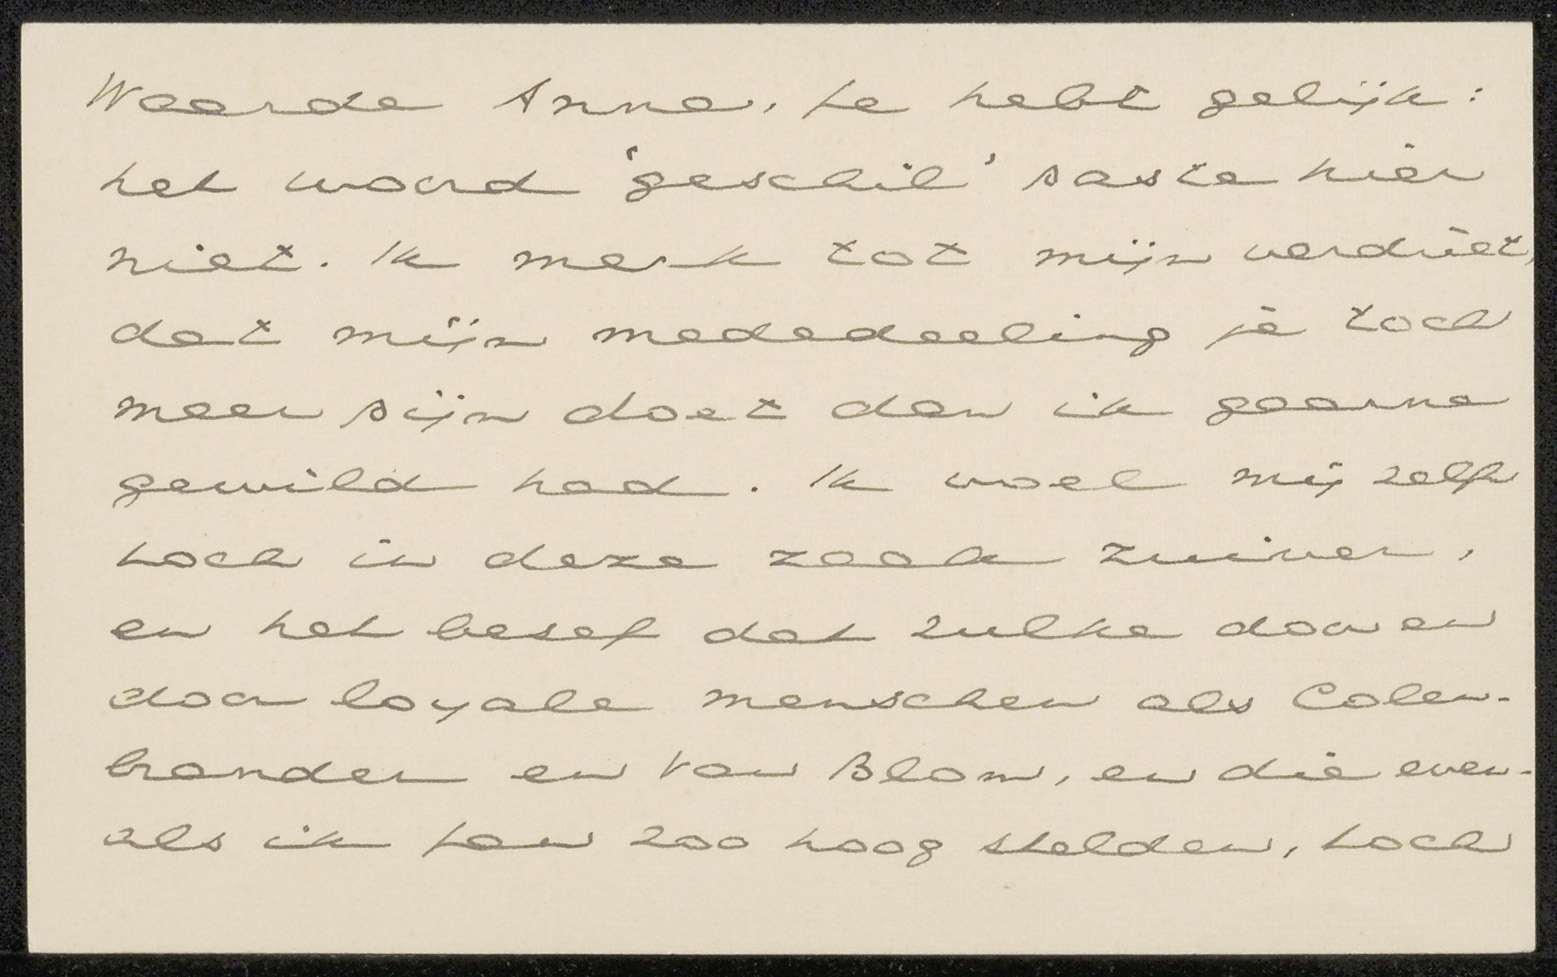 Waarde Anna, Je hebt gelijk:
het woord 'geschil' paste hier
niet. Ik merk tot mijn verdriet,
dat mijn mededeeling je toch
meer pijn doet dan ik gaarne
gewild had. Ik voel mij zelf
toch in deze zaak zuiver,
en het besef dat zulke door en
door loyale menschen als Colen-
brander en Van Blom, en die even-
als ik Jan zoo hoog stelden, toch